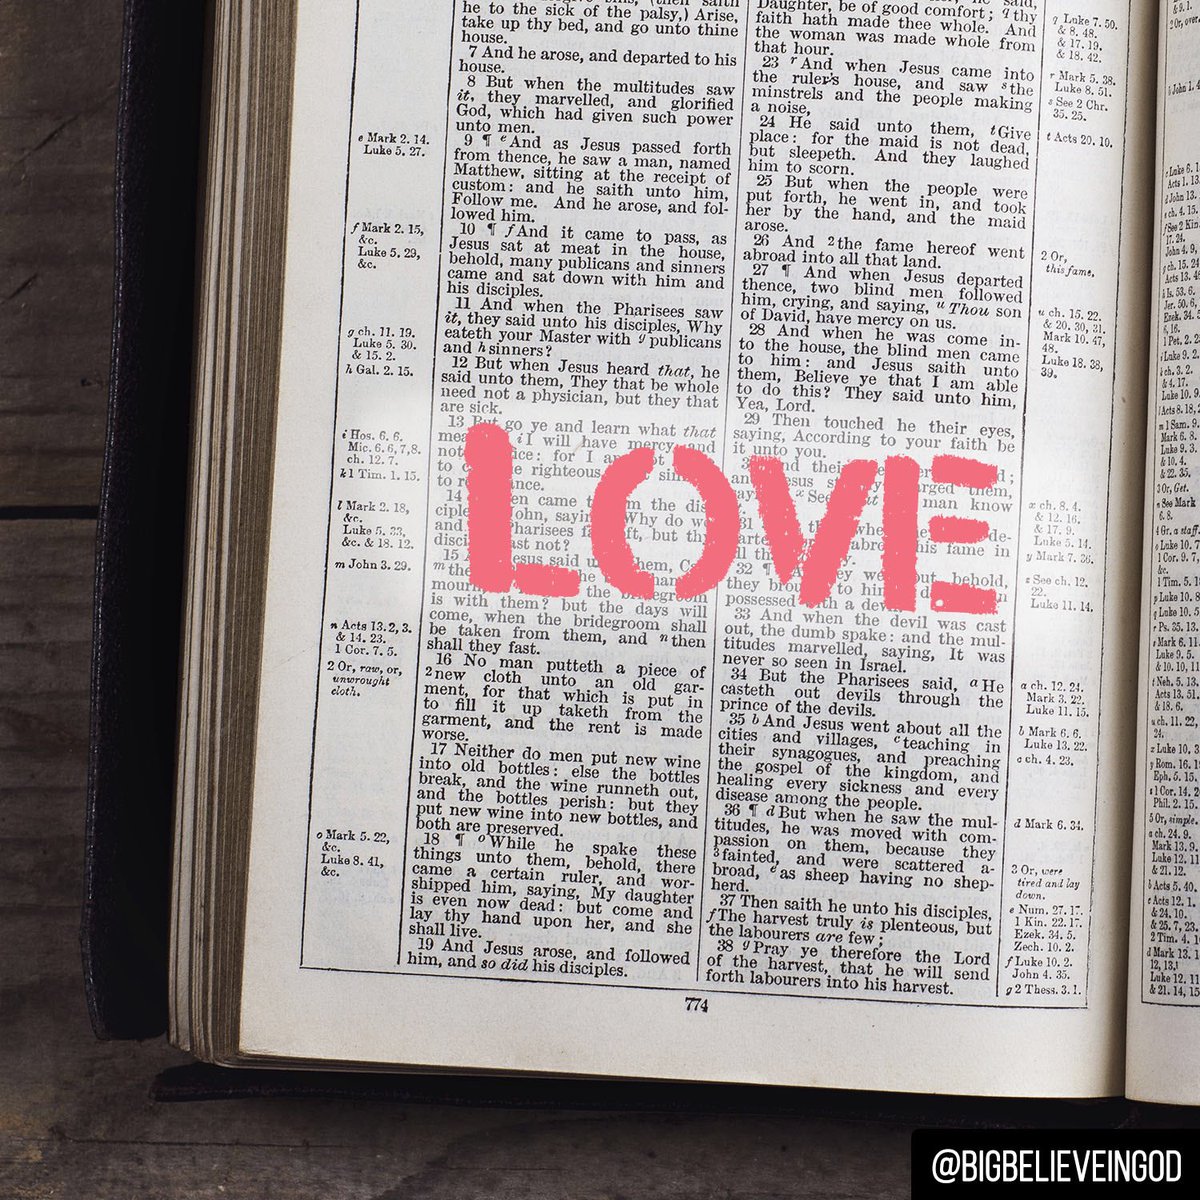 e Mark 2. 14.
Luke 5. 27.
f Mark 2. 15,
&c.
Luke 5. 29,
&c.
g ch. 11. 19.
Luke 5. 30.
& 15. 2.
h Gal. 2. 15.
i Hos. 6. 6.
Mic. 6. 6, 7, 8.
ch. 12. 7.
k 1 Tim. 1. 15.
l Mark 2. 18,
&c.
Luke 5. 33,
&c. & 18. 12.
m John 3. 29.
n Acts 13. 2, 3.
& 14. 23.
1 Cor. 7. 5.
2 Or, raw, or,
unwrought
cloth.
o Mark 5. 22,
&c.
Luke 8. 41,
&c.
he to the sick of the palsy,) Arise,
take up thy bed, and go unto thine
house.
7 And he arose, and departed to his
house.
8 But when the multitudes saw
it, they marvelled, and glorified
God, which had given such power
unto men.
9 ¶ e And as Jesus passed forth
from thence, he saw a man, named
Matthew, sitting at the receipt of
custom: and he saith unto him,
Follow me. And he arose, and fol-
lowed him.
10 ¶ f And it came to pass, as
Jesus sat at meat in the house,
behold, many publicans and sinners
came and sat down with him and
his disciples.
11 And when the Pharisees saw
it, they said unto his disciples, Why
eateth your Master with g publicans
and h sinners?
12 But when Jesus heard that, he
said unto them, They that be whole
need not a physician, but they that
are sick.
13 But go ye and learn what that
i I will have mercy, and
not for I
to righteous
to
14 came the
John, Why do we
and Pharisees but thy
not?
15 Jesus said
m the the
the bridegroom
is with them? but the days will
come, when the bridegroom shall
be taken from them, and n then
shall they fast.
16 No man putteth a piece of
2 new cloth unto an old gar-
ment, for that which is put in
to fill it up taketh from the
garment, and the rent is made
worse.
17 Neither do men put new wine
into old bottles: else the bottles
break, and the wine runneth out,
and the bottles perish: but they
put new wine into new bottles, and
both are preserved.
18 ¶ o While he spake these
things unto them, behold, there
came a certain ruler, and wor-
shipped him, saying, My daughter
is even now dead: but come and
lay thy hand upon her, and she
shall live.
19 And Jesus arose, and followed
him, and so did his disciples.
Daughter, be of good comfort; q thy
faith hath made thee whole. And
the woman was made whole from
that hour.
23 r And when Jesus came into
the ruler's house, and saw s the
minstrels and the people making
a noise,
24 He said unto them, t Give
place: for the maid is not dead,
but sleepeth. And they laughed
him to scorn.
25 But when the people were
put forth, he went in, and took
her by the hand, and the maid
arose.
26 And 2 the fame hereof went
abroad into all that land.
27 ¶ And when Jesus departed
thence, two blind men followed
him, crying, and saying, u Thou son
of David, have mercy on us.
28 And when he was come in-
to the house, the blind men came
to him: and Jesus saith unto
them, Believe ye that I am able
to do this? They said unto him,
Yea, Lord.
29 Then touched he their eyes,
saying, According to your faith be
it unto you.
their
them,
x See man know
31 de-
his fame in
all
32 ¶ behold,
they to him
possessed with a
33 And when the devil was cast
out, the dumb spake: and the mul-
titudes marvelled, saying, It was
never so seen in Israel.
34 But the Pharisees said, a He
casteth out devils through the
prince of the devils.
35 b And Jesus went about all the
cities and villages, c teaching in
their synagogues, and preaching
the gospel of the kingdom, and
healing every sickness and every
disease among the people.
36 ¶ d But when he saw the mul-
titudes, he was moved with com-
passion on them, because they
3 fainted, and were scattered a-
broad, e as sheep having no shep-
herd.
37 Then saith he unto his disciples,
f The harvest truly is plenteous, but
the labourers are few;
38 g Pray ye therefore the Lord
of the harvest, that he will send
forth labourers into his harvest.
q Luke 7. 50.
& 8. 48.
& 17. 19.
& 18. 42.
r Mark 5. 38.
Luke 8. 51.
s See 2 Chr.
35. 25.
t Acts 20. 10.
2 Or,
this fame.
u ch. 15. 22.
& 20. 30, 31.
Mark 10. 47,
48.
Luke 18. 38,
39.
x ch. 8. 4.
& 12. 16.
& 17. 9.
Luke 5. 14.
y Mark 7. 36.
z See ch. 12.
22.
Luke 11. 14.
a ch. 12. 24.
Mark 3. 22.
Luke 11. 15.
b Mark 6. 6.
Luke 13. 22.
c ch. 4. 23.
d Mark 6. 34.
3 Or, were
tired and lay
down.
e Num. 27. 17.
1 Kin. 22. 17.
Ezek. 34. 5.
Zech. 10. 2.
f Luke 10. 2.
John 4. 35.
g 2 Thess. 3. 1.
774
LOVE
@BIGBELIEVEINGOD